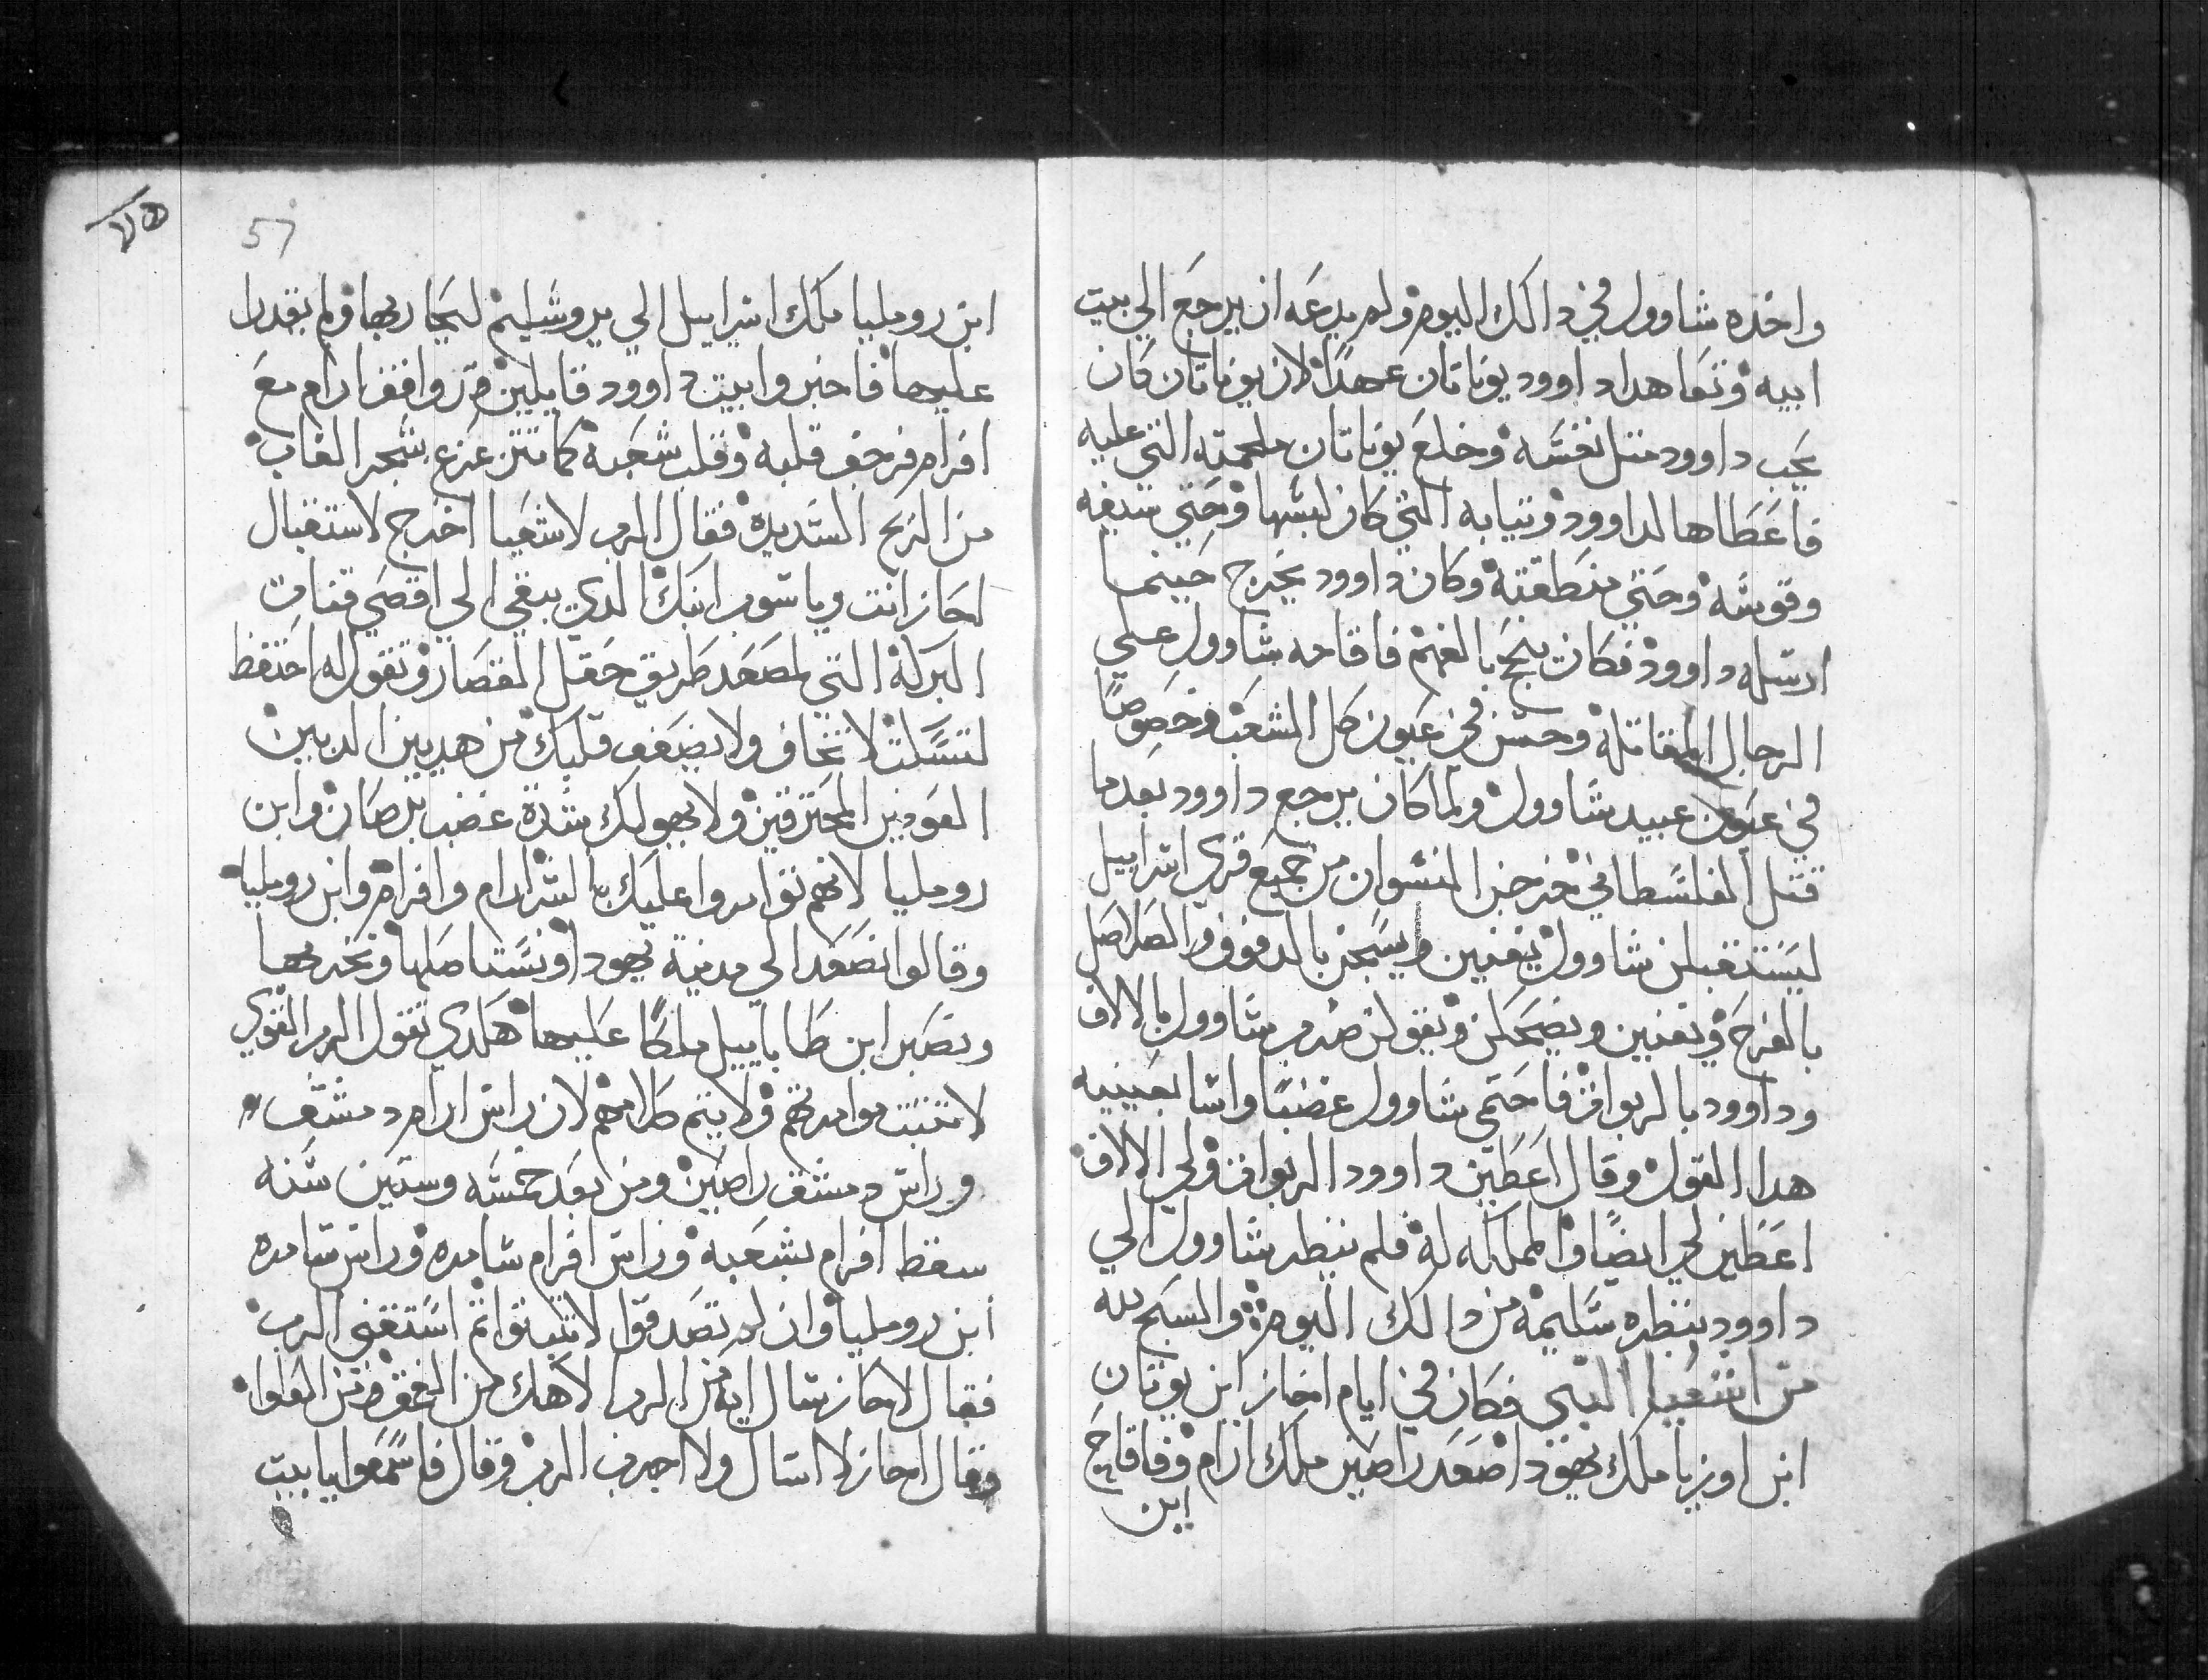 واخذه شاوول في دالك اليوم ولم يدعه ان يرجع الي بيت
ابيه وتعاهد داوود يوناتان عهدًا لان يوناتان كان
يحب داوود متل نفسه وخلع يوناتان ملحمته التي عليه
فاعطاها لداوود وتيابه التي كان لبسها وحتي سيفه
وقوسه وحتي منطقته وكان داوود يخرج حيتما
ارسله داوود فكان ينجح بالفهم فاقامه شاوول علي
الرجال المقاتله وحسن في عيون كل الشعب وخصوصًا
في عيون عبيد شاوول ولما كان يرجع داوود بعدما
قتل الفلسطاني خرجن النسوان من جميع قري اسراييل
ليستقبلن شاوول يتغنين ويسبحن بالدفوف والصلاصل
بالفرح وتغنين ويضحكن ويقولن ضرب شاوول بالالاف
وداوود بالربوات فاحتمي شاوول غضبًا واسا بعينيه
هدا القول وقال اعطين داوود الربوات ولي الالاف
اعطين لي ايضًا والمملكه له فلم ينظر شاوول الي
داوود بنظره سليمه من دالك اليوم والسبح لله
من اشعيا النبي فكان في ايام احاز ابن يوتان
ابن اوزيا ملك يهودا صعد راصين ملك ارام وفاقاح
ابن
57
٧٥
ابن روميليا ملك اسراييل الي يروشليم ليحاربها ولم يقدرا
عليها فاخبروا بيت داوود قايلين قد وافق ارام مع
افرام فرجف قلبه وقلب شعبه كما تتزعزع شجر الغاب
من الريح الشديده فقال الرب لاشعيا اخرج لاستقبال
احاز انت وياشوب ابنك الدي يبقي الي اقصي قنات
البركة التي لمصعد طريق حقل القصار وتقول له احتفظ
لتسكت لا تخاف ولا يضعف قلبك من هديين الدبين
العودين المحترقين ولا يهولك شدة غضب برصان وابن
روميليا لانهم توامروا عليك بالشر ارام وافرام وابن روميليا
وقالوا نصعد الي مدينة يهودا ونستاصلها ونخربها
ونصير ابن طاباييل ملكًا عليها هكدي تقول الرب القوي
لا تتبت موامرتهم ولا يتم كلامهم لان راس ارام دمشق
وراس دمشق راصين ومن بعد خمسه وستين سنه
سقط افرام بشعبه وراس افرام سامره وراس سامره
ابن روميليا وان لم تصدقوا لا تتبتوا تم استغني الرب
فقال لاحاز سال ايه من الرب الاهك من العمق من العلوا
وقال احاز لا اسال ولا اجرب الرب وقال فاسمعوا يا بيت